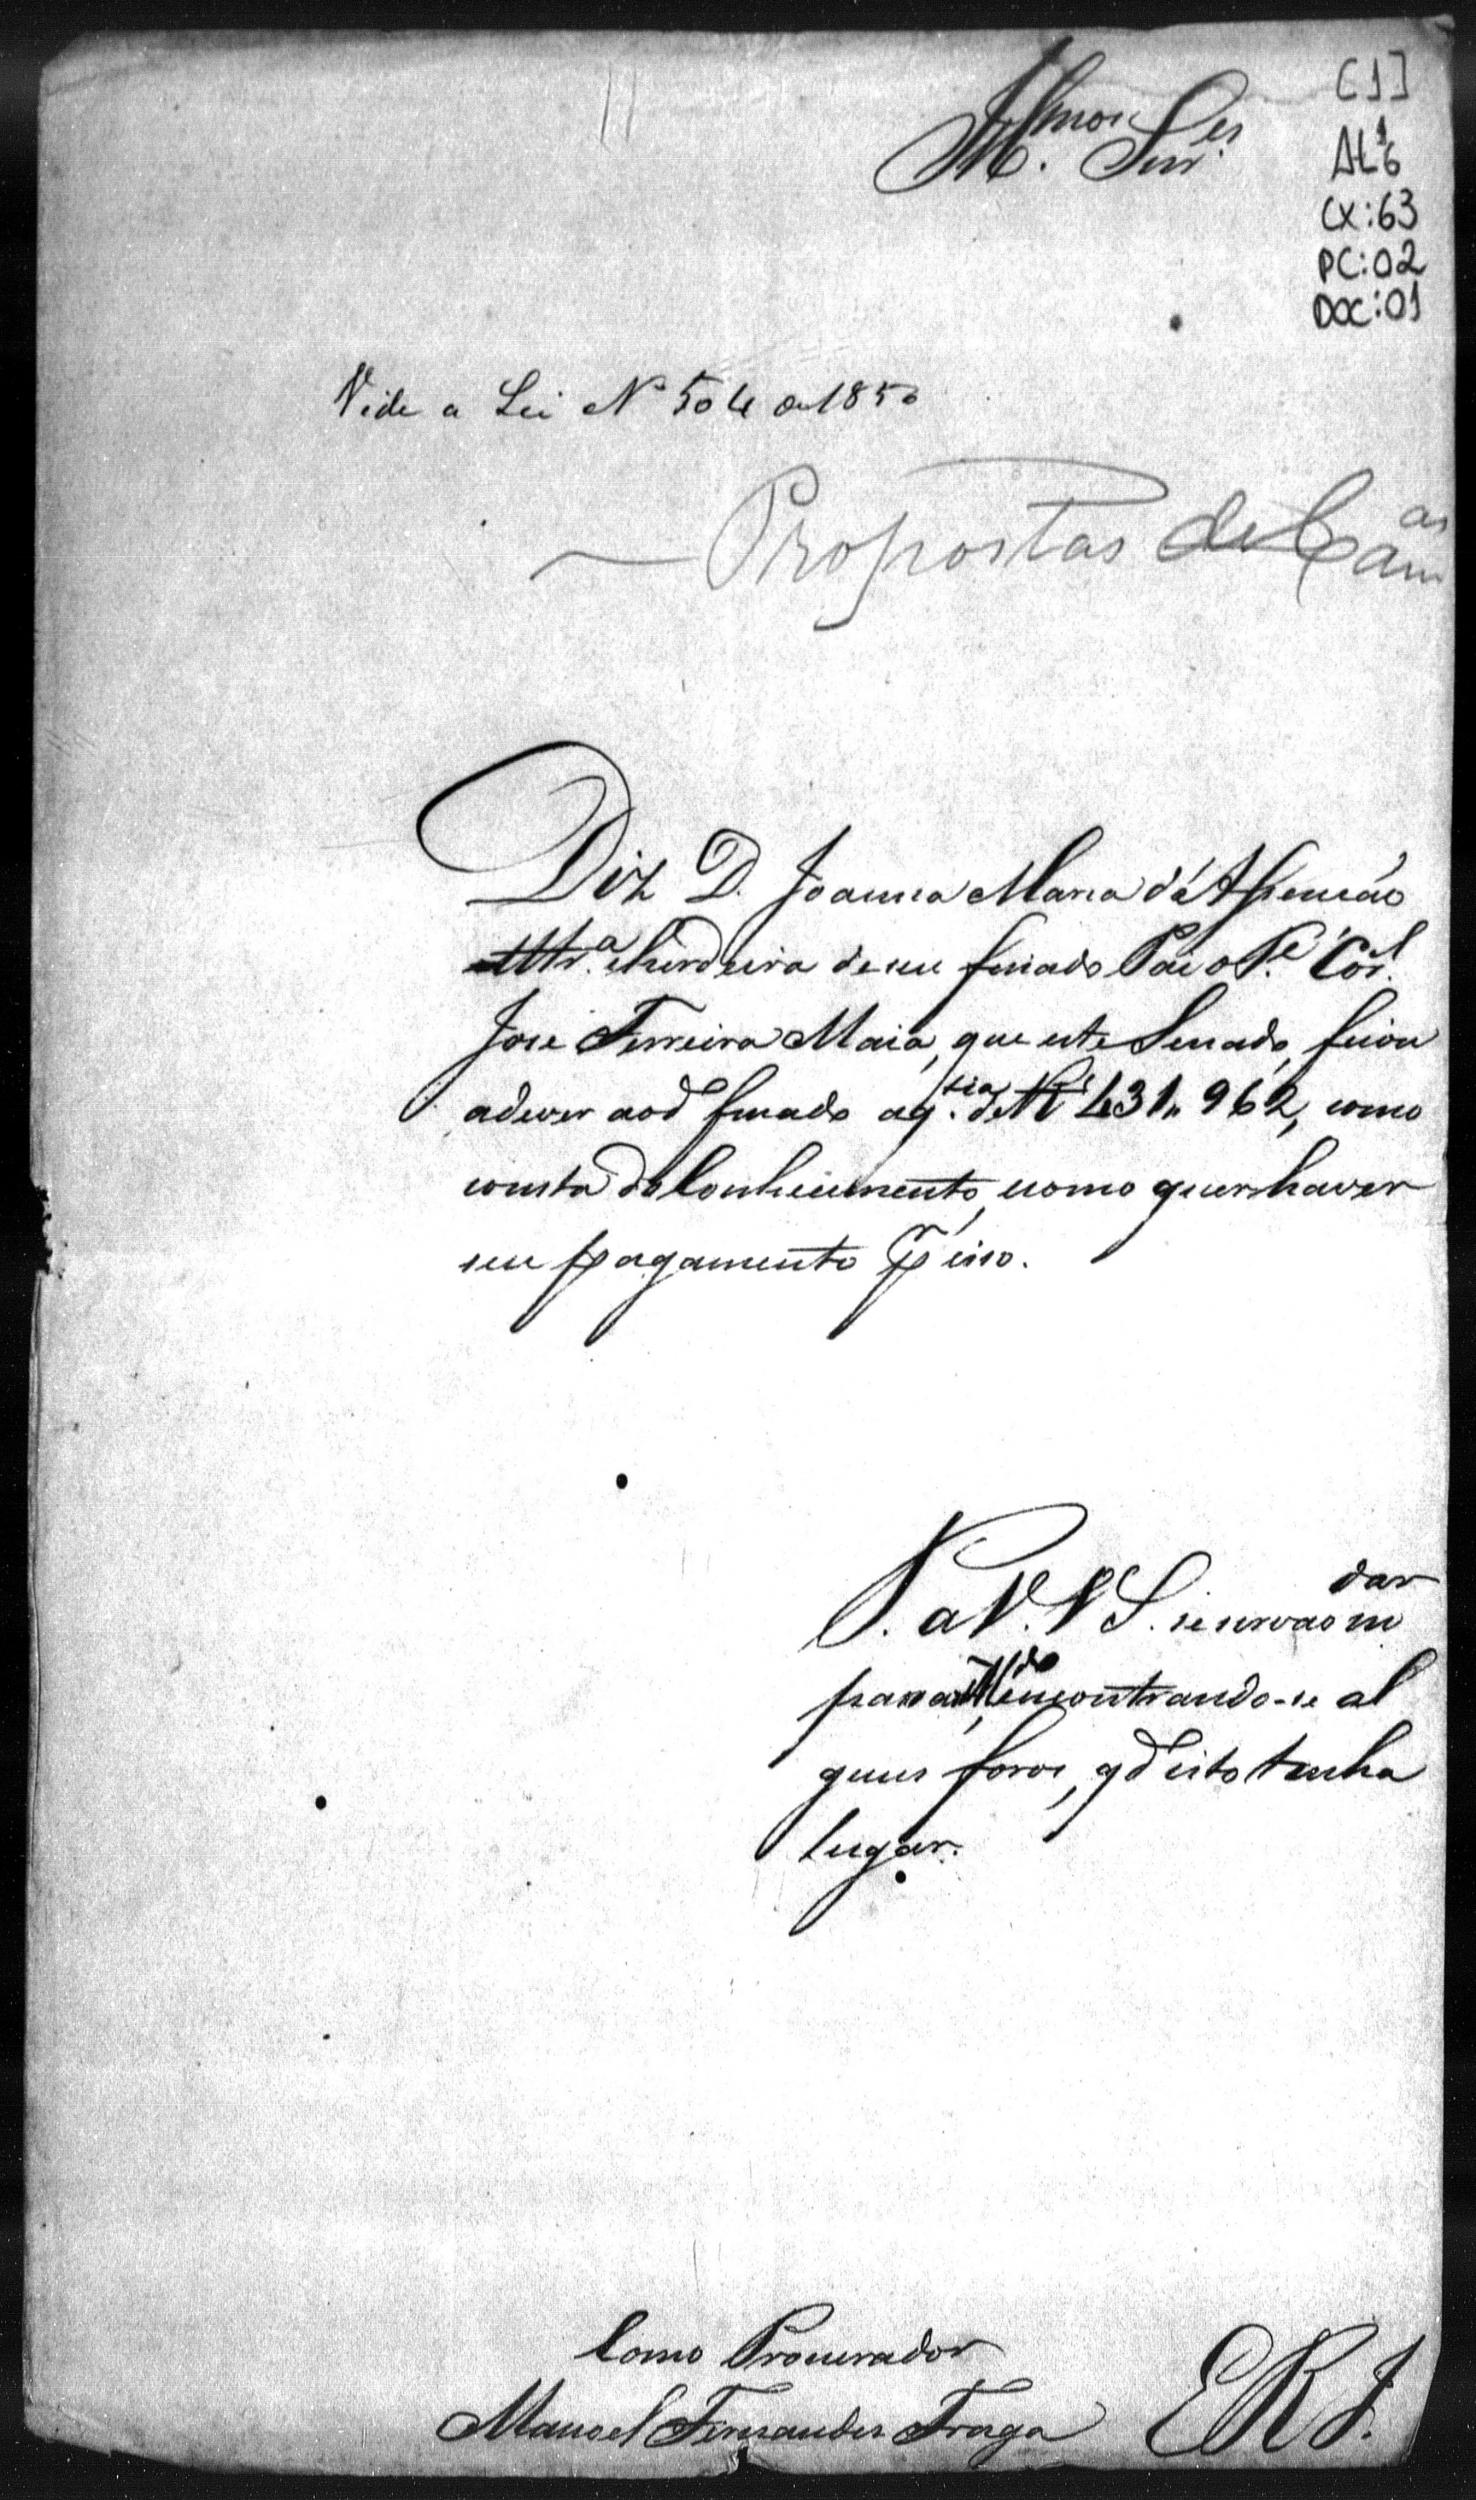 Illmos Snres
[1]
AL1.6
CX:63
PC:02
DOC:01
Vide a Lei Nº 504 de 1850
Propostas de Camas
Diz D. Joanna Maria d'Assencão
herdeira de seu finado Pai o Pe Cor.l
Jose Ferreira Maia, que este Senado, ficou
adever aod finado aq.tia de Rs 431„962, como
consta do Conhecimento, ecomo quer haver
seu pagamento pr isso.
P. a V. V S. se sirvão mdar
passar Mdo encontrando-se al
guns foros, qdo isto tenha
lugar.
Como Procurador
Manoel Fernandes Fraga
E R J.